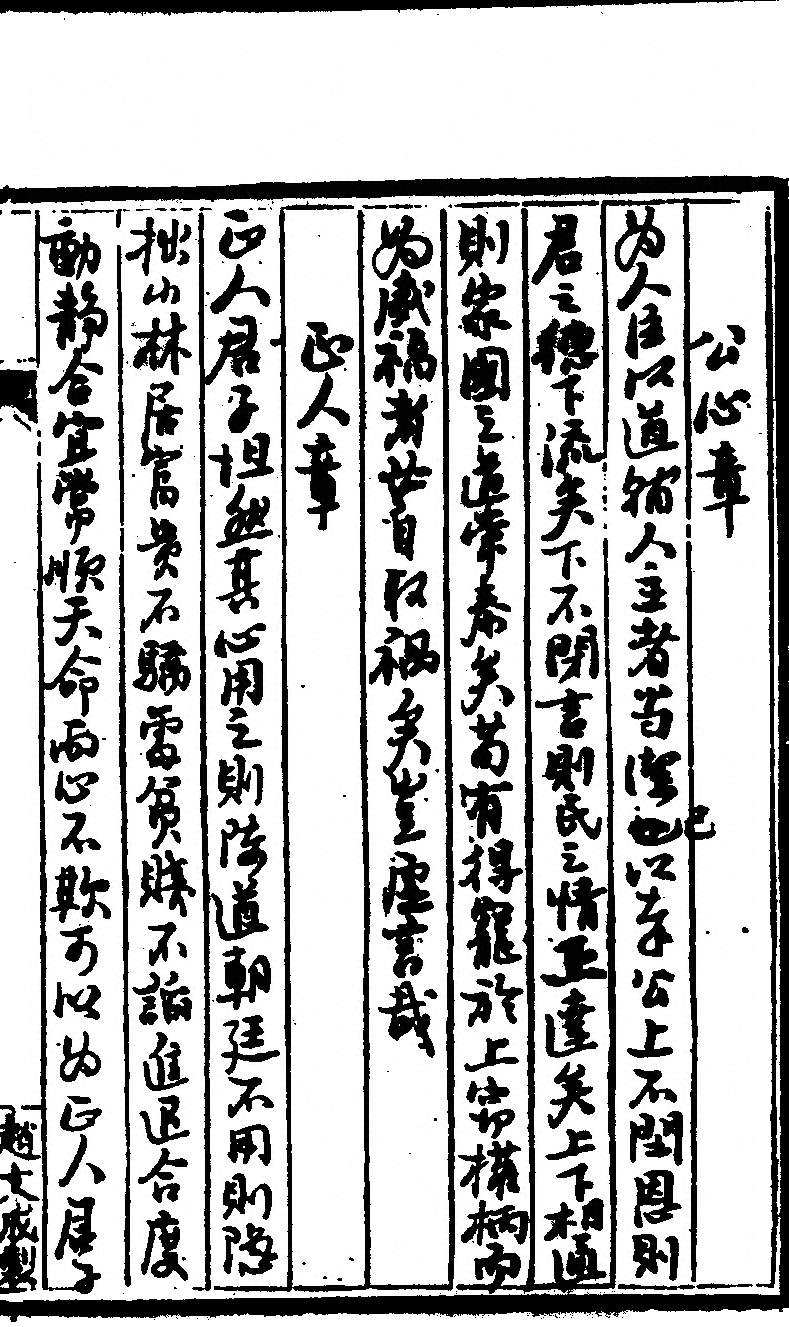 公心章
為人臣以道輔人主者当潔己以奉公上不閉恩則
君之聽下流矣下不閉言則民之情上達矣上下相通
則家國之道常泰矣苟有得寵於上窃權柄而
為威福者昔自取禍矣豈虛言哉
正人章
正人君子坦然其心用之則陳道朝廷不用則隱
拙山林居富貴不驕處貧賤不諂進退合度
動静合宜常順天命而心不欺可以為正人君子